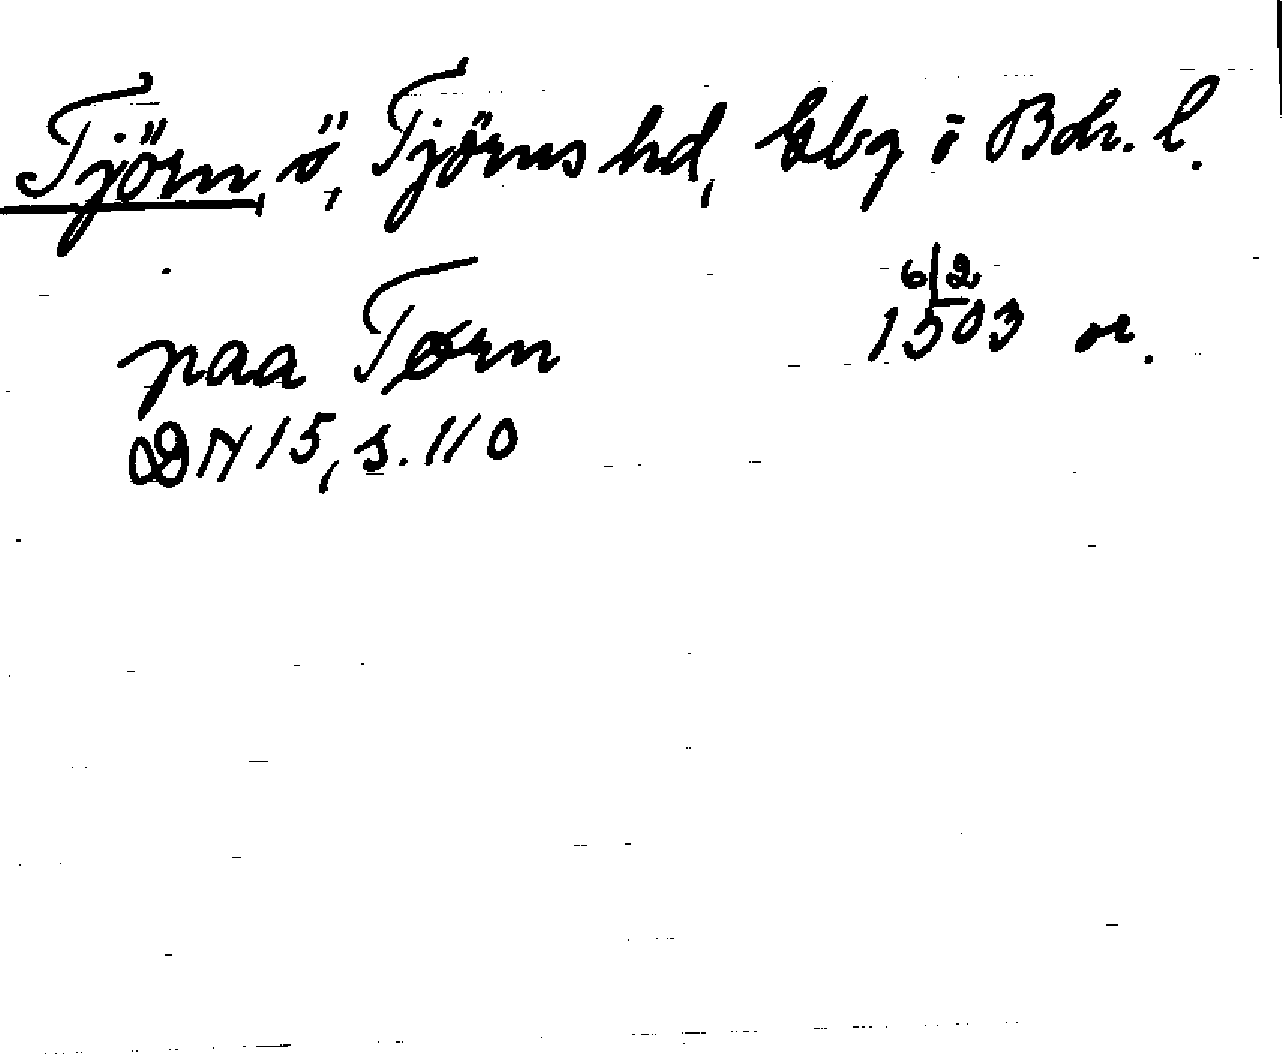 Tjörn, ö, Tjörns hd, Gbg o Boh. l.
6/2
paa Tørn 1503 or.
DN 15, s. 110